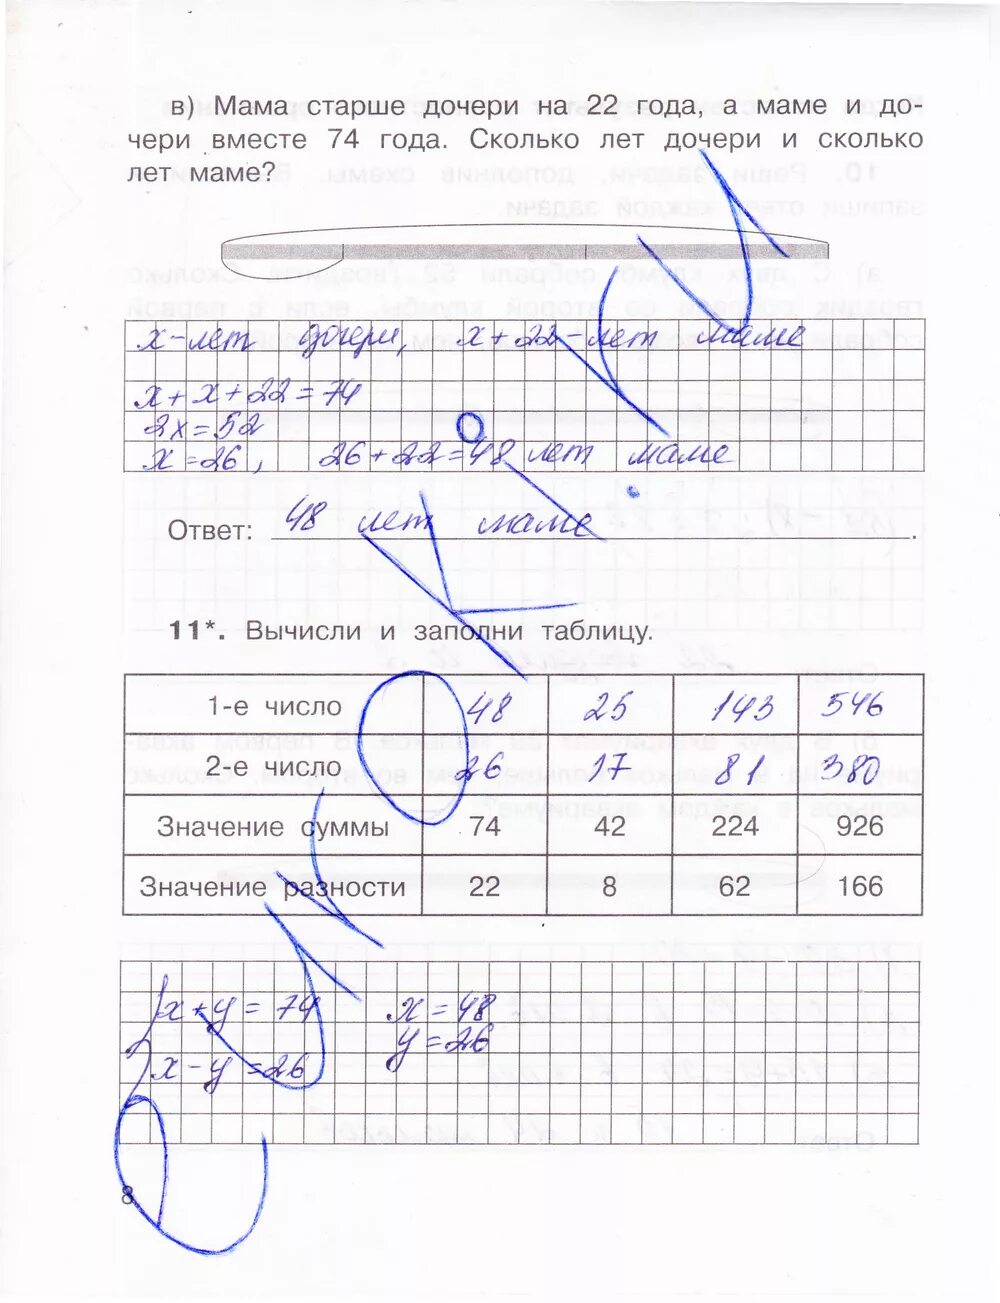 в) Мама старше дочери на 22 года, а маме и до-
чери вместе 74 года. Сколько лет дочери и сколько
лет маме?
х - лет дочери, х + 22 - лет маме
х + х + 22 = 74
2х = 52
х = 26, 26 + 22 = 48 лет маме
Ответ: 48 лет маме.
11*. Вычисли и заполни таблицу.
1-е число 48 25 143 546
2-е число 26 17 81 380
Значение суммы 74 42 224 926
Значение разности 22 8 62 166
х + у = 74 х = 48
у = 26
х - у = 26
8